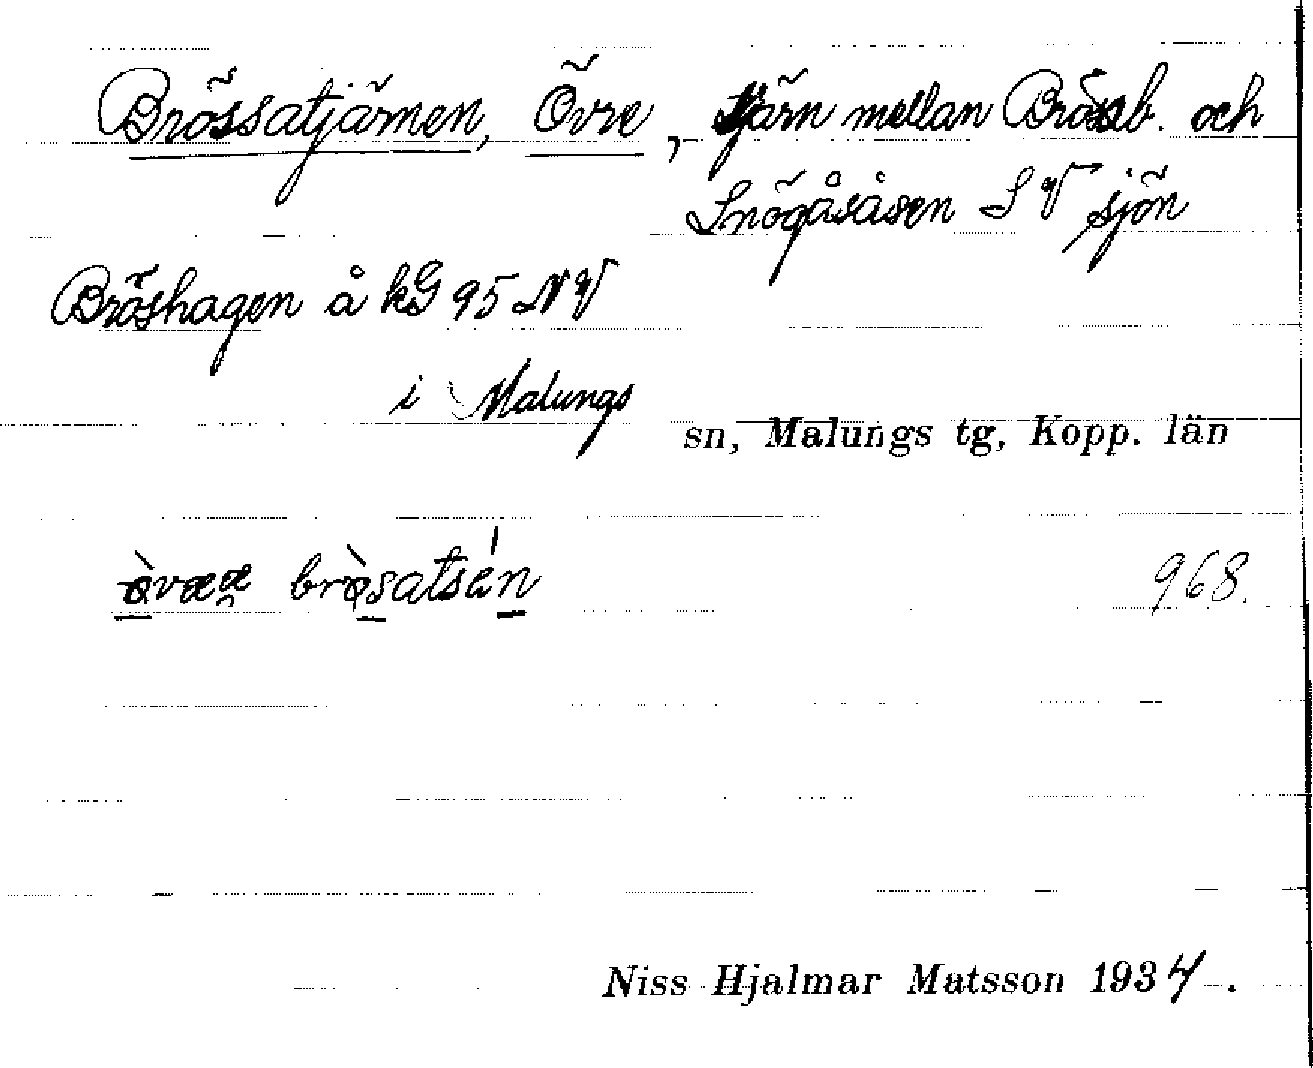 Brössatjärnen, Övre, tjärn mellan Brössb. och
Snögåsåsen S V sjön
Bröshagen å kG 95 NV
i Malungs sn, Malungs tg, Kopp. län
968.
Niss Hjalmar Matsson 1934.